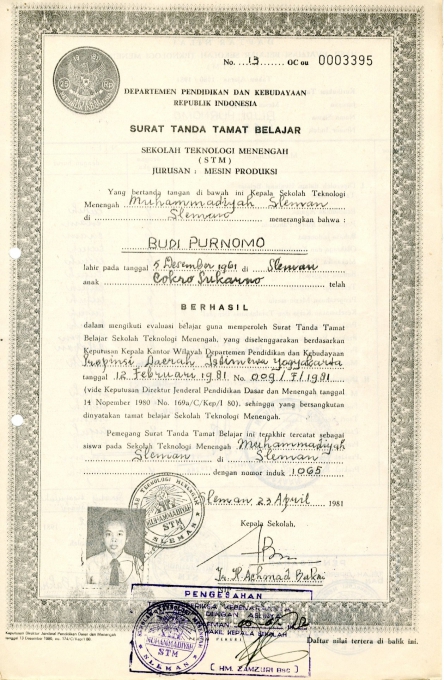 No. 13 OC ou 0003395
DEPARTEMEN PENDIDIKAN DAN KEBUDAYAAN
REPUBLIK INDONESIA
SURAT TANDA TAMAT BELAJAR
SEKOLAH TEKNOLOGI MENENGAH
( STM )
JURUSAN : MESIN PRODUKSI
Yang bertanda tangan di bawah ini Kepala Sekolah Teknologi
Menengah Muhammadiyah Sleman
di Sleman menerangkan bahwa :
BUDI PURNOMO
lahir pada tanggal 5 Desember 1961 di Sleman
anak Cokro Sukarno telah
BERHASIL
dalam mengikuti evaluasi belajar guna memperoleh Surat Tanda Tamat
Belajar Sekolah Teknologi Menengah, yang diselenggarakan berdasarkan
Keputusan Kepala Kantor Wilayah Departemen Pendidikan dan Kebudayaan
Propinsi Daerah Istimewa Yogyakarta
tanggal 12 Februari 1981 No. 009/F/1981
(vide Keputusan Direktur Jenderal Pendidikan Dasar dan Menengah tanggal
14 Nopember 1980 No. 169a/C/Kep/I 80), sehingga yang bersangkutan
dinyatakan tamat belajar Sekolah Teknologi Menengah.
Pemegang Surat Tanda Tamat Belajar ini terakhir tercatat sebagai
siswa pada Sekolah Teknologi Menengah Muhammadiyah
Sleman di Sleman
dengan nomor induk 1065
Sleman 23 April 1981
Kepala Sekolah,
SEKOLAH TEKNOLOGI MENENGAH
MUHAMMADIYAH
STM
SLEMAN
PENGESAHAN
WAKIL KEPALA SEKOLAH
MUHAMMADIYAH
STM
SLEMAN
( HM. ZAMZURI BSc )
Keputusan Direktur Jenderal Pendidikan Dasar dan Menengah
Daftar nilai tertera di balik ini.